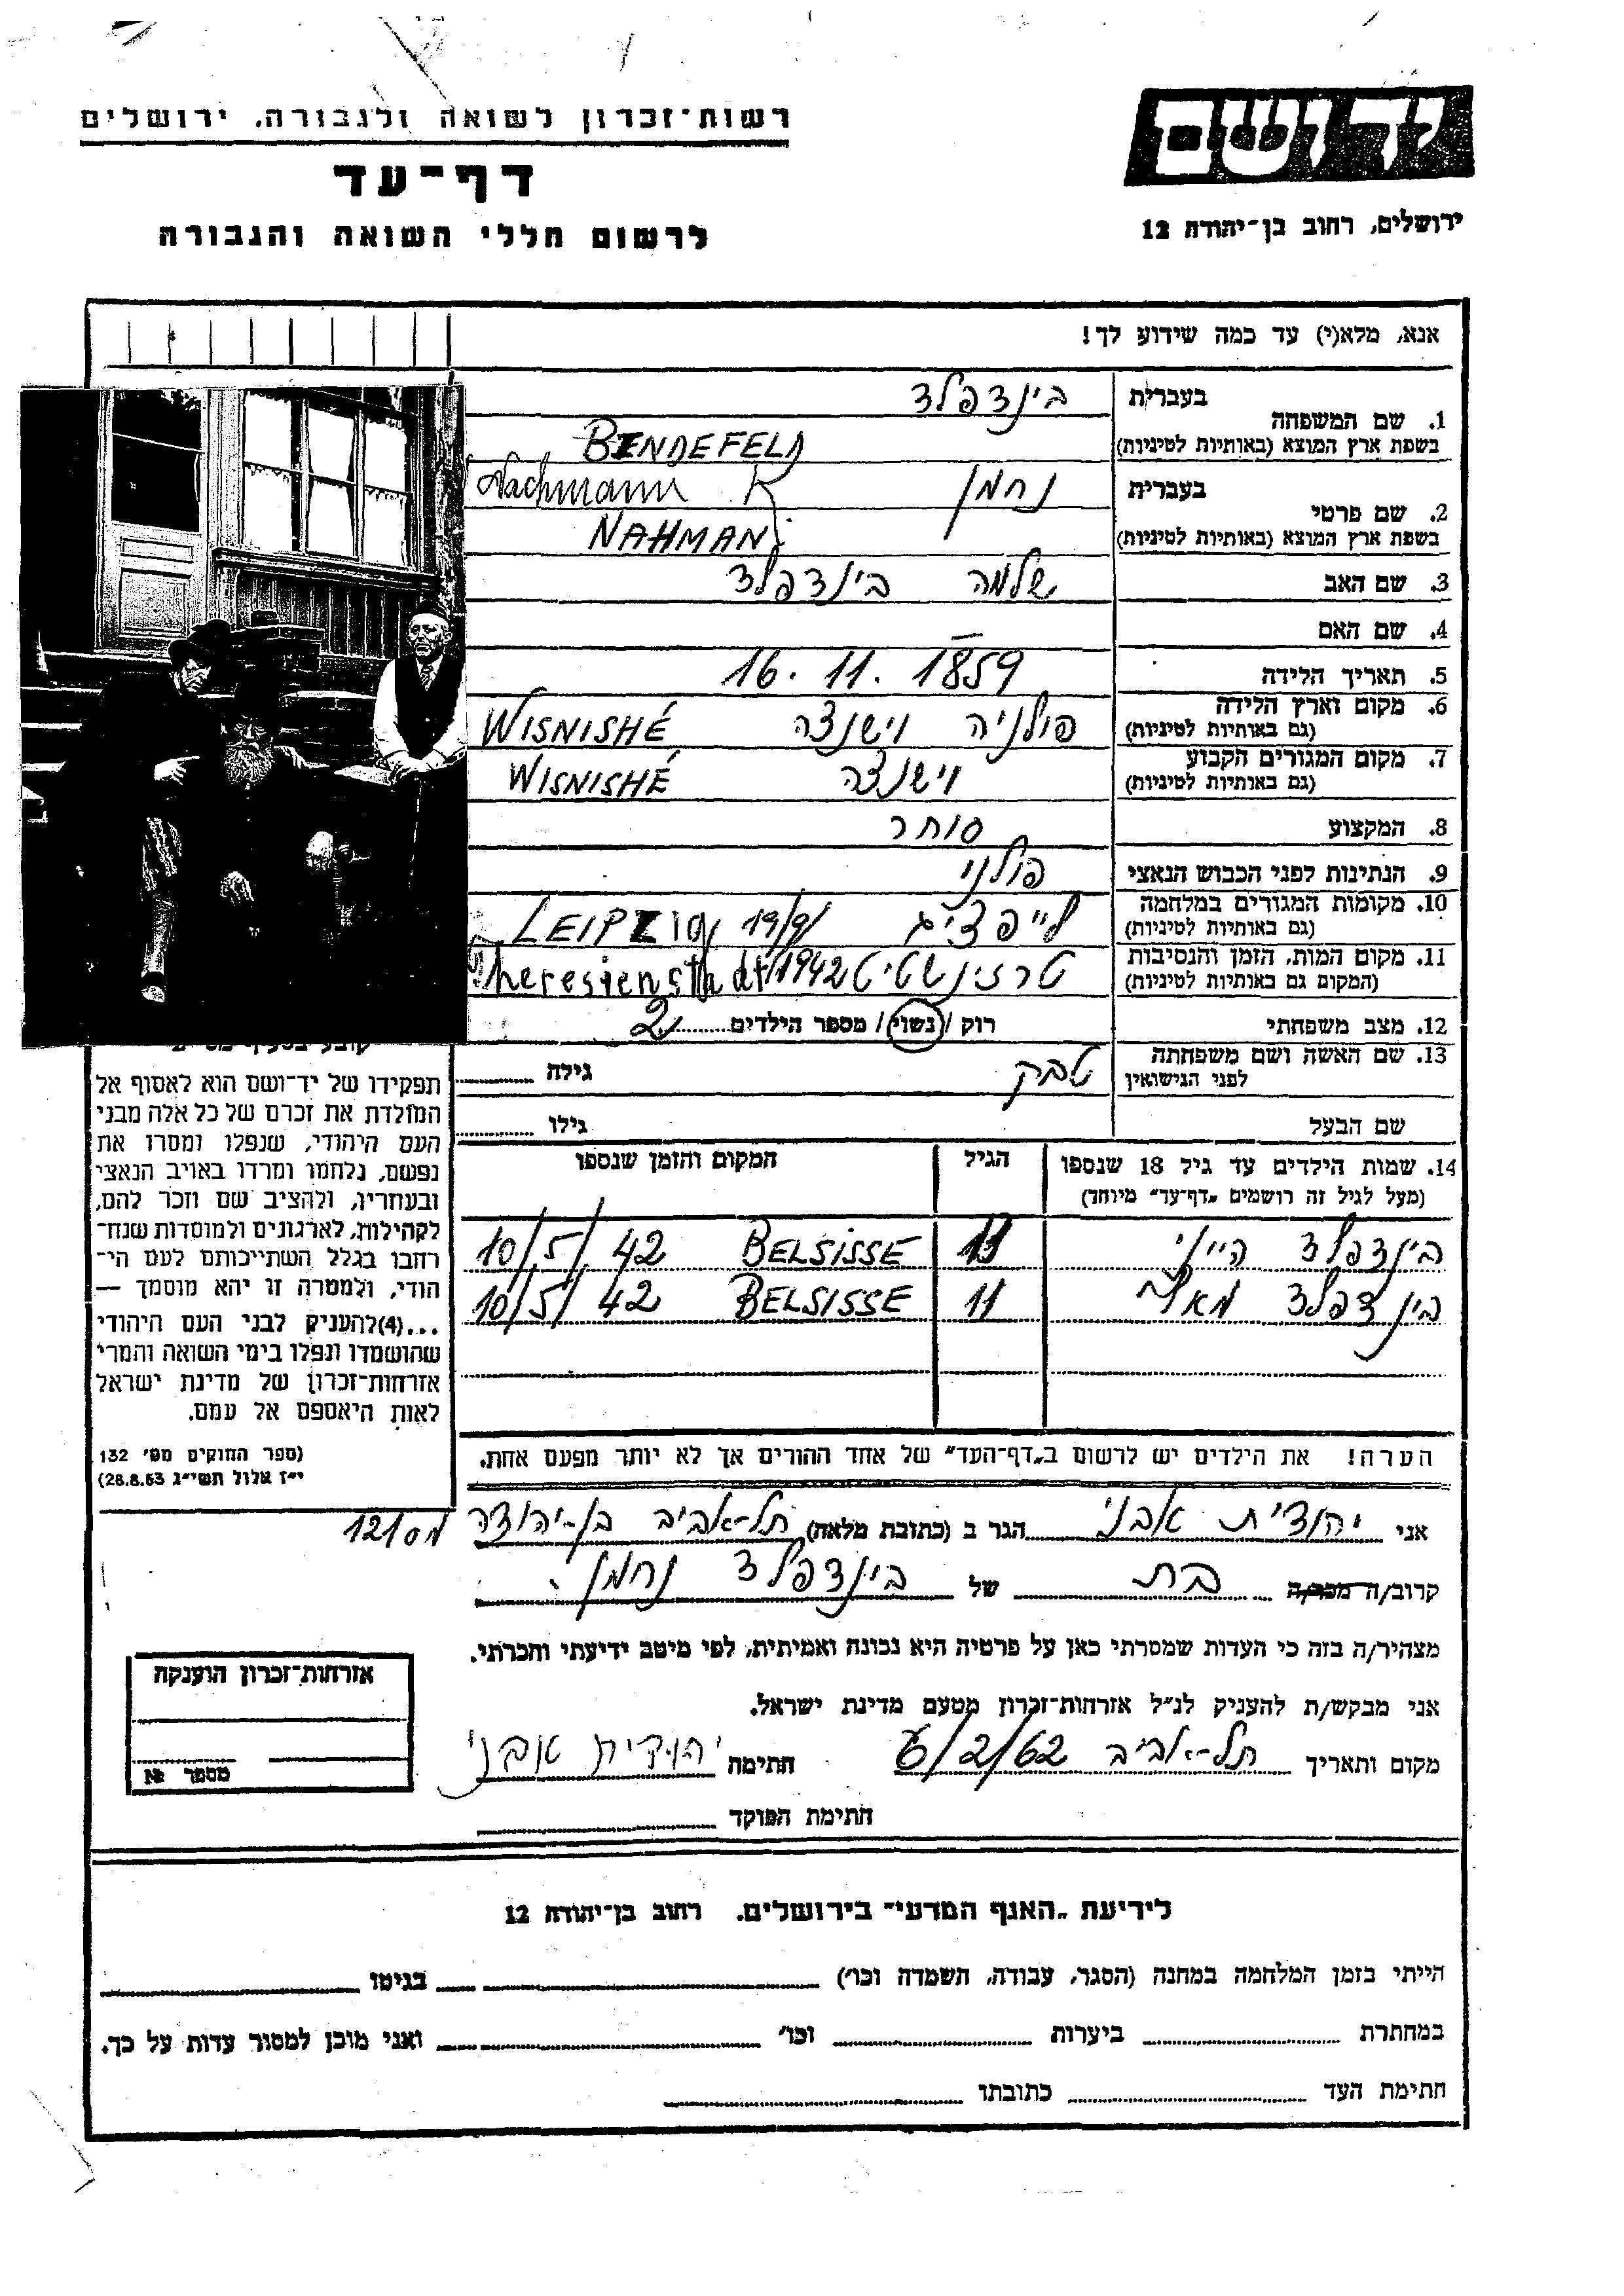 יד ושם
רשות־זכרון לשואה ולגבורה, ירושלים
דף־עד
לרשום חללי השואה והגבורה
ירושלים, רחוב בן־יהודה 12
אנא, מלא(י) עד כמה שידוע לך!
1. שם המשפחה בעברית בינדפלד
בשפת ארץ המוצא (באותיות לטיניות) BENDEFELD
2. שם פרטי בעברית נחמן Nachmann K
בשפת ארץ המוצא (באותיות לטיניות) NAHMAN
3. שם האב שלמה בינדפלד
4. שם האם —
5. תאריך הלידה 16.11.1859
6. מקום וארץ הלידה פולניה וישנצה WISNISHÉ
(גם באותיות לטיניות)
7. מקום המגורים הקבוע וישנצה WISNISHÉ
(גם באותיות לטיניות)
8. המקצוע סוחר
9. הנתינות לפני הכבוש הנאצי פולני
10. מקומות המגורים במלחמה לייפציג LEIPZIG 19/9/
(גם באותיות לטיניות)
11. מקום המות, הזמן והנסיבות טרזינשטיט Theresienstadt/1942
(המקום גם באותיות לטיניות)
12. מצב משפחתי רוק / נשוי / מספר הילדים 2
13. שם האשה ושם משפחתה לפני הנישואין טבק גילה
שם הבעל גילו
14. שמות הילדים עד גיל 18 שנספו הגיל המקום והזמן שנספו
(מעל לגיל זה רושמים "דף־עד" מיוחד)
בינדפלד היינ׳ BELSISSE 10/5/42
בינדפלד 11 BELSISSE 10/5/42
תפקידו של יד־ושם הוא לאסוף אל
המולדת את זכרם של כל אלה מבני
העם היהודי, שנפלו ומסרו את
נפשם, נלחמו ומרדו באויב הנאצי
ובעוזריו, ולהציב שם וזכר להם,
לקהילות, לארגונים ולמוסדות שנח־
רחבו בגלל השתייכותם לעם הי־
הודי, ולמטרה זו יהא מוסמך —
...(4)להעניק לבני העם היהודי
שהושמדו ונפלו בימי השואה והמרי
אזרחות־זכרון של מדינת ישראל
לאות היאספם אל עמם.
(ספר החוקים מס׳ 132
י״ז אלול תשי״ג 28.8.53)
הערה! את הילדים יש לרשום ב"דף־העד" של אחד ההורים אך לא יותר מפעם אחת.
אני יהודית אבני הגר ב (כתובת מלאה) תל-אביב בן-יהודה 121
קרוב/ה מכר/ה בת של בינדפלד נחמן
מצהיר/ה בזה כי העדות שמסרתי כאן על פרטיה היא נכונה ואמיתית, לפי מיטב ידיעתי והכרתי.
אני מבקש/ת להעניק לנ״ל אזרחות־זכרון מטעם מדינת ישראל.
מקום ותאריך תל-אביב 6/2/62 חתימה יהודית אבני
חתימת הפוקד
אזרחות־זכרון הוענקה
מספר №
לידיעת "האגף המדעי" בירושלים, רחוב בן־יהודה 12
הייתי בזמן המלחמה במחנה (הסגר, עבודה, השמדה וכו׳) בגיטו
במחתרת ביערות וכו׳ ואני מוכן למסור עדות על כך.
חתימת העד כתובתו